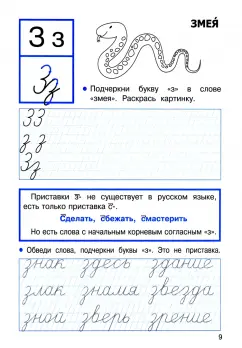 ЗМЕЯ́
З з
Зз
• Подчеркни букву «з» в слове
«змея». Раскрась картинку.
З З
з з
Зз
Приставки з- не существует в русском языке,
есть только приставка с-.
Сделать, сбежать, смастерить
Но есть слова с начальным корневым согласным «з».
• Обведи слова, подчеркни буквы «з». Это не приставка.
знак здесь здание
злак знамя звезда
зноа зверь зрение
9